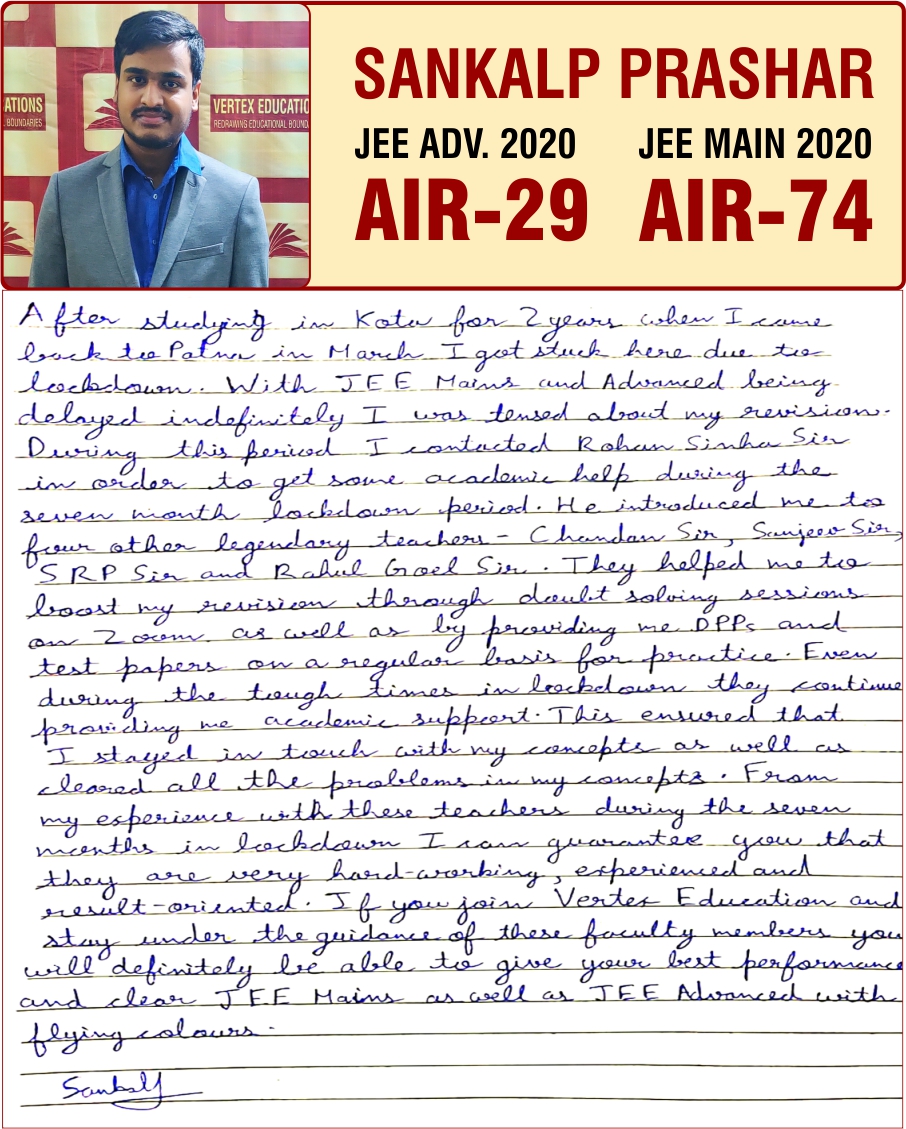 ATIONS
BOUNDARIES
VERTEX EDUCATIO
REDRAWING EDUCATIONAL BOUND
SANKALP PRASHAR
JEE ADV. 2020 JEE MAIN 2020
AIR-29 AIR-74
After studying in Kota for 2 years when I came
back to Patna in March I got stuck here due to
lockdown. With JEE Mains and Advanced being
delayed indefinitely I was tensed about my revision.
During this period I contacted Rohan Sinha Sir
in order to get some academic help during the
seven month lockdown period. He introduced me to
four other legendary teachers - Chandan Sir, Sanjeev Sir,
SRP Sir and Rahul Goel Sir. They helped me to
boost my revision through doubt solving sessions
on Zoom as well as by providing me DPPs and
test papers on a regular basis for practice. Even
during the tough times in lockdown they continue
providing me academic support. This ensured that
I stayed in touch with my concepts as well as
cleared all the problems in my concepts. From
my experience with these teachers during the seven
months in lockdown I can guarantee you that
they are very hard-working, experienced and
result-oriented. If you join Vertex Education and
stay under the guidance of these faculty members you
will definitely be able to give your best performance
and clear JEE Mains as well as JEE Advanced with
flying colours.
Sankalp